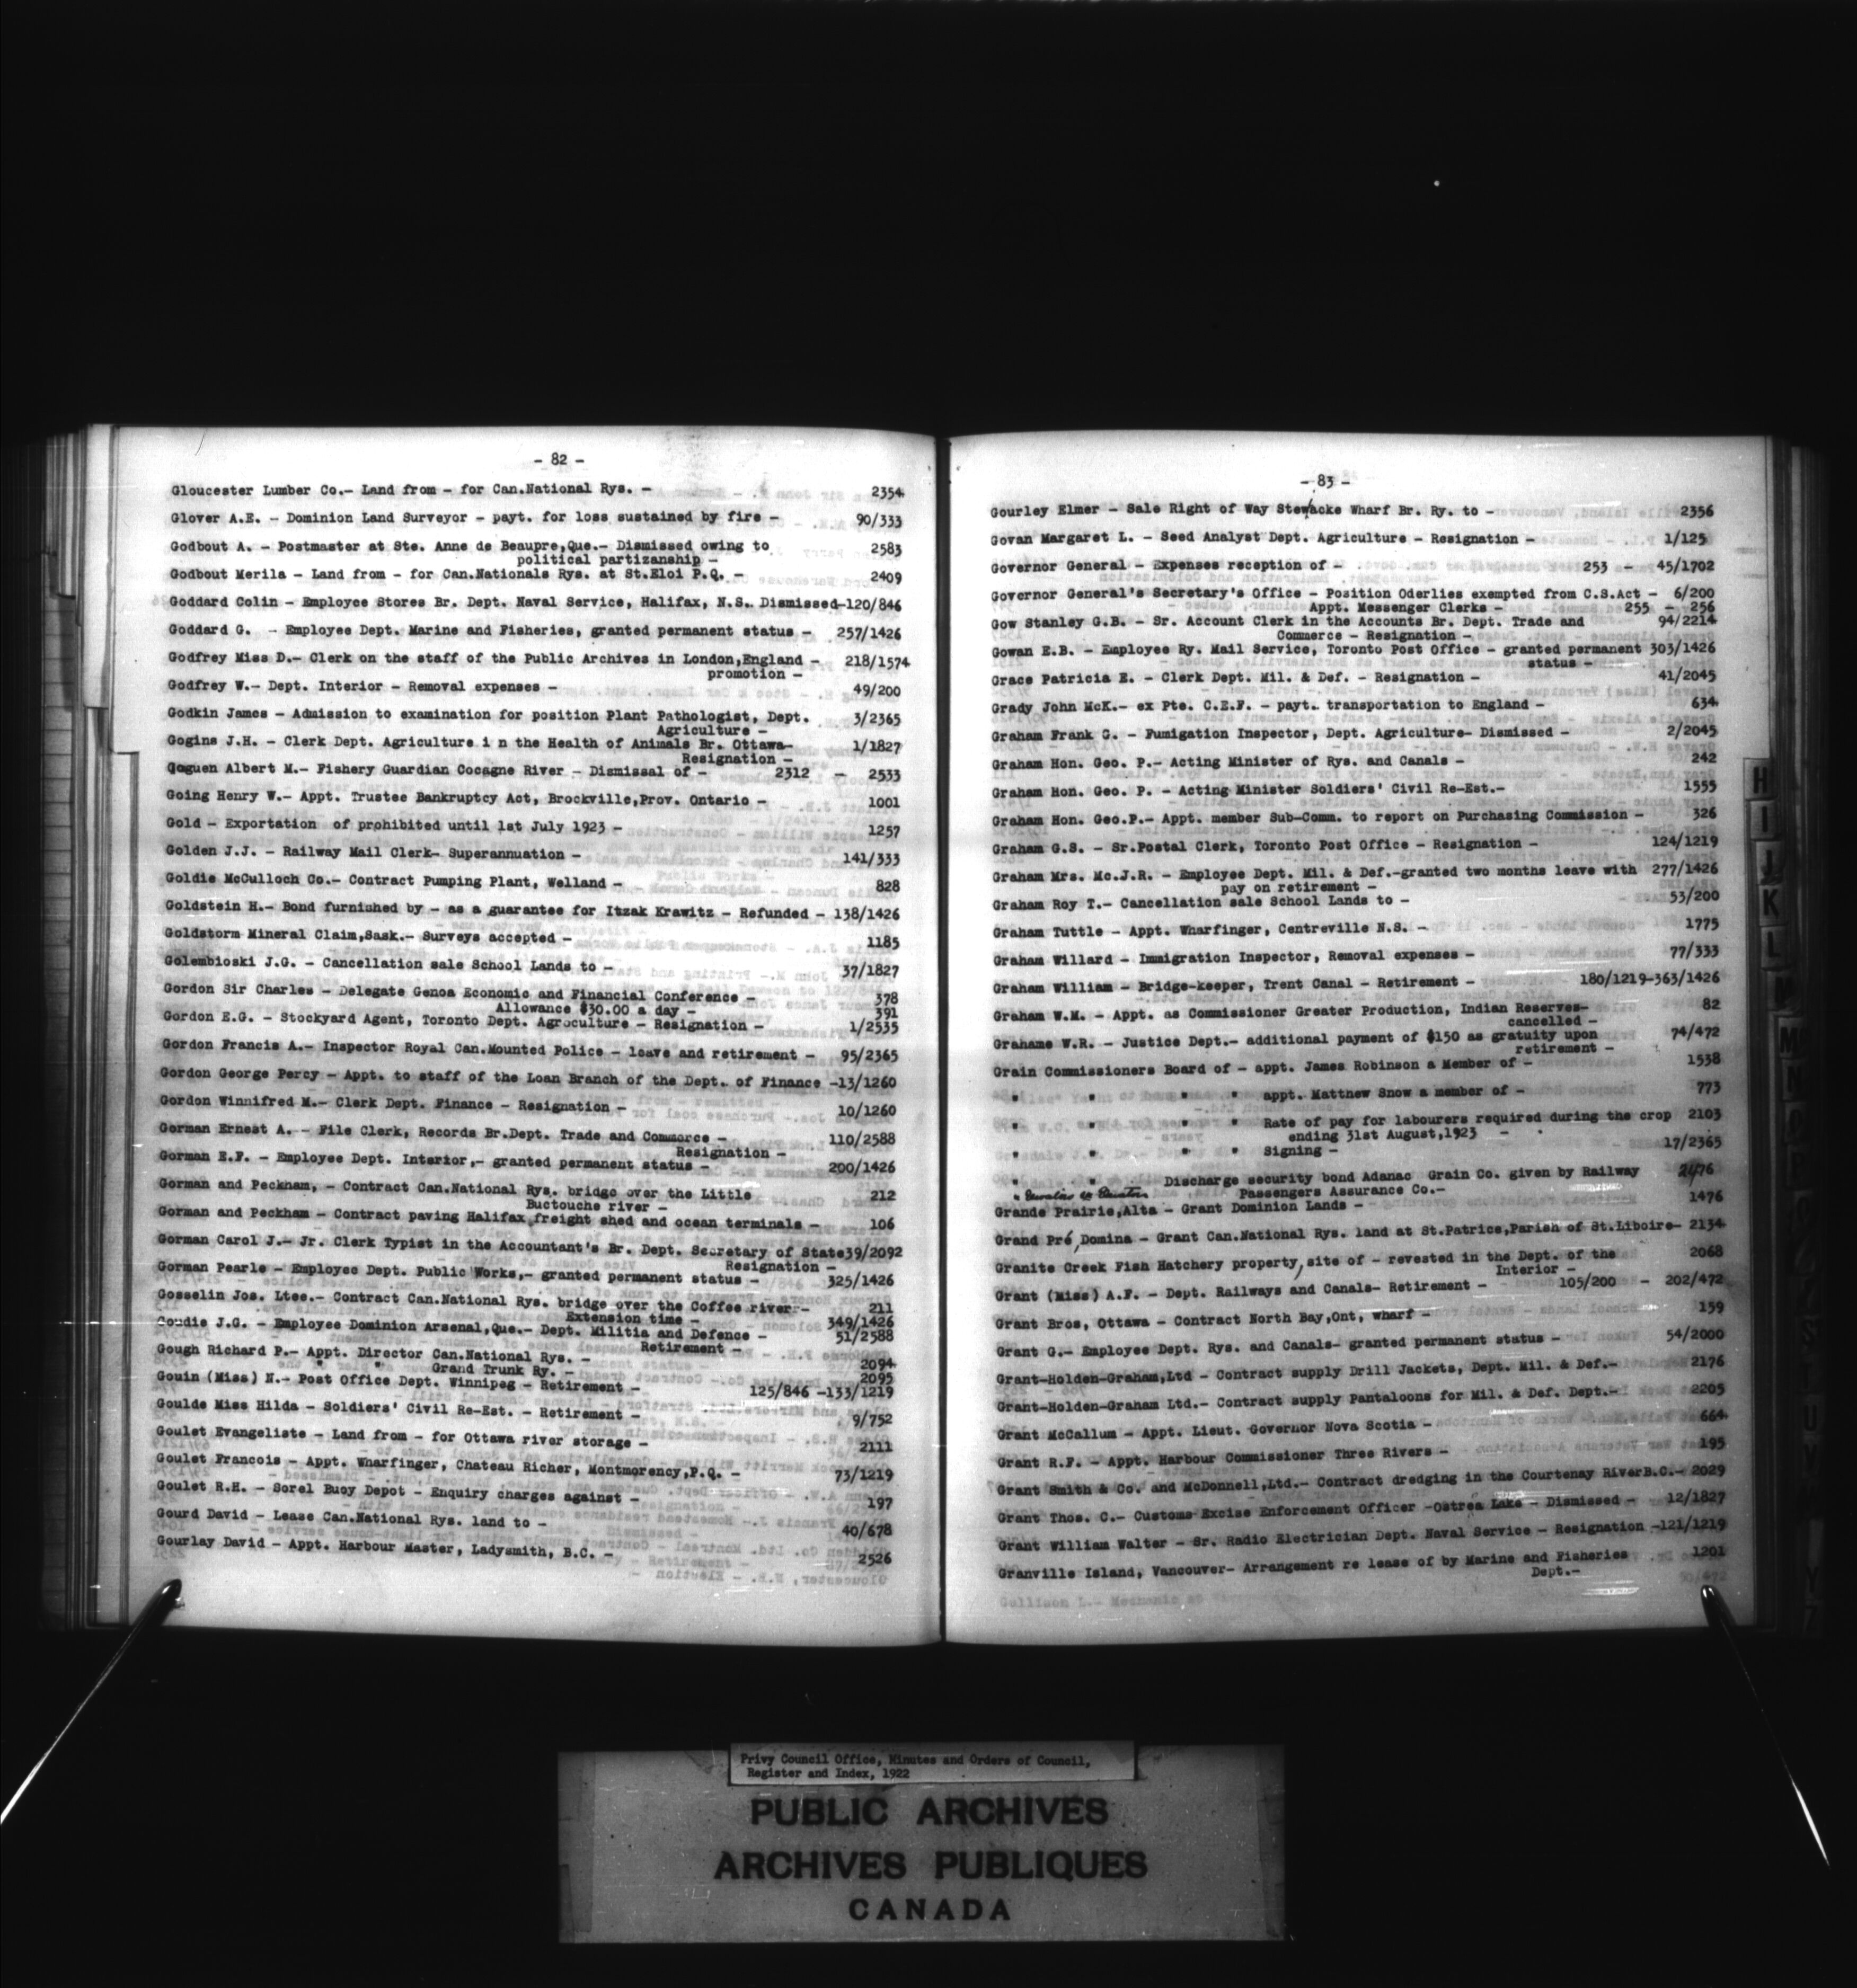 - 82 -
Gloucester Lumber Co.- Land from - for Can.National Rys. - 2354
Glover A.E. - Dominion Land Surveyor - payt. for loss sustained by fire - 90/333
Godbout A. - Postmaster at Ste. Anne de Beaupre,Que.- Dismissed owing to 2583
political partizanship -
Godbout Merila - Land from - for Can.Nationals Rys. at St.Eloi P.Q. - 2409
Goddard Colin - Employee Stores Br. Dept. Naval Service, Halifax, N.S. Dismissed-120/846
Goddard G. - Employee Dept. Marine and Fisheries, granted permanent status - 257/1426
Godfrey Miss D.- Clerk on the staff of the Public Archives in London,England - 218/1574
promotion -
Godfrey W.- Dept. Interior - Removal expenses - 49/200
Godkin James - Admission to examination for position Plant Pathologist, Dept. 3/2365
Agriculture -
Gogins J.H. - Clerk Dept. Agriculture i n the Health of Animals Br. Ottawa- 1/1827
Resignation -
Goguen Albert M.- Fishery Guardian Cocagne River - Dismissal of - 2312 - 2533
Going Henry W.- Appt. Trustee Bankruptcy Act, Brockville,Prov. Ontario - 1001
Gold - Exportation of prohibited until 1st July 1923 - 1257
Golden J.J. - Railway Mail Clerk- Superannuation - 141/333
Goldie McCulloch Co.- Contract Pumping Plant, Welland - 828
Goldstein H.- Bond furnished by - as a guarantee for Itzak Krawitz - Refunded - 138/1426
Goldstorm Mineral Claim,Sask.- Surveys accepted - 1185
Golembioski J.G. - Cancellation sale School Lands to - 37/1827
Gordon Sir Charles - Delegate Genoa Economic and Financial Conference - 378
Allowance $30.00 a day - 391
Gordon E.G. - Stockyard Agent, Toronto Dept. Agroculture - Resignation - 1/2535
Gordon Francis A.- Inspector Royal Can.Mounted Police - leave and retirement - 95/2365
Gordon George Percy - Appt. to staff of the Loan Branch of the Dept. of Finance -13/1260
Gordon Winnifred M.- Clerk Dept. Finance - Resignation - 10/1260
Gorman Ernest A. - File Clerk, Records Br.Dept. Trade and Commerce - 110/2588
Resignation -
Gorman E.F. - Employee Dept. Interior,- granted permanent status - 200/1426
Gorman and Peckham, - Contract Can.National Rys. bridge over the Little 212
Buctouche river -
Gorman and Peckham - Contract paving Halifax freight shed and ocean terminals - 106
Gorman Carol J.- Jr. Clerk Typist in the Accountant's Br. Dept. Secretary of State39/2092
Resignation -
Gorman Pearle - Employee Dept. Public Works,- granted permanent status - 325/1426
Gosselin Jos. Ltee.- Contract Can.National Rys. bridge over the Coffee river- 211
Extension time - 349/1426
Goudie J.G. - Employee Dominion Arsenal,Que.- Dept. Militia and Defence - 51/2588
Retirement -
Gough Richard P.- Appt. Director Can.National Rys. - 2094
" " Grand Trunk Ry. - 2095
Gouin (Miss) N.- Post Office Dept. Winnipeg - Retirement - 125/846 -133/1219
Goulde Miss Hilda - Soldiers' Civil Re-Est. - Retirement - 9/752
Goulet Evangeliste - Land from - for Ottawa river storage - 2111
Goulet Francois - Appt. Wharfinger, Chateau Richer, Montmorency,P.Q. - 73/1219
Goulet R.H. - Sorel Buoy Depot - Enquiry charges against - 197
Gourd David - Lease Can.National Rys. land to - 40/678
Gourlay David - Appt. Harbour Master, Ladysmith, B.C. - 2526
- 83 -
Gourley Elmer - Sale Right of Way Stewiacke Wharf Br. Ry. to - 2356
Govan Margaret L. - Seed Analyst Dept. Agriculture - Resignation - 1/125
Governor General - Expenses reception of - 253 - 45/1702
Governor General's Secretary's Office - Position Oderlies exempted from C.S.Act - 6/200
Appt. Messenger Clerks - 255 - 256
Gow Stanley G.B. - Sr. Account Clerk in the Accounts Br. Dept. Trade and 94/2214
Commerce - Resignation -
Gowan E.B. - Employee Ry. Mail Service, Toronto Post Office - granted permanent 303/1426
status -
Grace Patricia E. - Clerk Dept. Mil. & Def. - Resignation - 41/2045
Grady John McK.- ex Pte. C.E.F. - payt. transportation to England - 634
Graham Frank G. - Fumigation Inspector, Dept. Agriculture- Dismissed - 2/2045
Graham Hon. Geo. P.- Acting Minister of Rys. and Canals - 242
Graham Hon. Geo. P. - Acting Minister Soldiers' Civil Re-Est.- 1555
Graham Hon. Geo.P.- Appt. member Sub-Comm. to report on Purchasing Commission - 326
Graham G.S. - Sr.Postal Clerk, Toronto Post Office - Resignation - 124/1219
Graham Mrs. Mc.J.R. - Employee Dept. Mil. & Def.-granted two months leave with 277/1426
pay on retirement -
Graham Roy T.- Cancellation sale School Lands to - 53/200
Graham Tuttle - Appt. Wharfinger, Centreville N.S. - 1775
Graham Willard - Immigration Inspector, Removal expenses - 77/333
Graham William - Bridge-keeper, Trent Canal - Retirement - 180/1219-363/1426
Graham W.M. - Appt. as Commissioner Greater Production, Indian Reserves- 82
cancelled -
Grahame W.R. - Justice Dept.- additional payment of $150 as gratuity upon 74/472
retirement -
Grain Commissioners Board of - appt. James Robinson a Member of - 1538
" " " " appt. Matthew Snow a member of - 773
" " " " Rate of pay for labourers required during the crop 2103
ending 31st August,1923 -
" " " " Signing - 17/2365
" " Discharge security bond Adanac Grain Co. given by Railway 2476
Passengers Assurance Co.-
Grande Prairie,Alta - Grant Dominion Lands - 1476
Grand Pré,Domina - Grant Can.National Rys. land at St.Patrice,Parish of St.Liboire- 2134
Granite Creek Fish Hatchery property, site of - revested in the Dept. of the 2068
Interior -
Grant (Miss) A.F. - Dept. Railways and Canals- Retirement - 105/200 - 202/472
Grant Bros, Ottawa - Contract North Bay,Ont, wharf - 159
Grant G.- Employee Dept. Rys. and Canals- granted permanent status - 54/2000
Grant-Holden-Graham,Ltd - Contract supply Drill Jackets, Dept. Mil. & Def.- 2176
Grant-Holden-Graham Ltd.- Contract supply Pantaloons for Mil. & Def. Dept.- 2205
Grant McCallum - Appt. Lieut. Governor Nova Scotia - 664
Grant R.F. - Appt. Harbour Commissioner Three Rivers - 195
Grant Smith & Co. and McDonnell,Ltd.- Contract dredging in the Courtenay RiverB.C.- 2029
Grant Thos. C.- Customs-Excise Enforcement Officer -Ostrea Lake - Dismissed - 12/1827
Grant William Walter - Sr. Radio Electrician Dept. Naval Service - Resignation -121/1219
Granville Island, Vancouver- Arrangement re lease of by Marine and Fisheries 1201
Dept.-
H
I
J
K
L
M
N
Privy Council Office, Minutes and Orders of Council,
Register and Index, 1922
PUBLIC ARCHIVES
ARCHIVES PUBLIQUES
CANADA